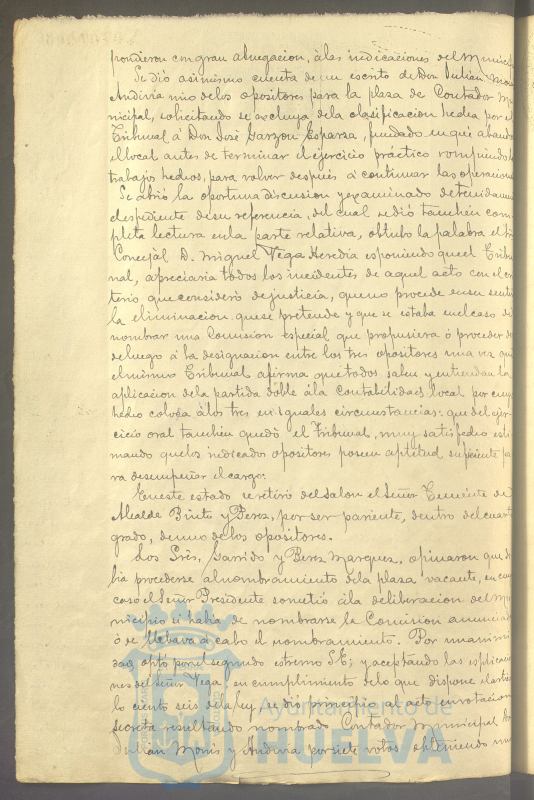 pondieron con gran abnegacion, á las indicaciones del Munici
Se dió asimismo cuenta de un escrito de Don Julian Mo
Andivia uno de los opositores para la plaza de Contador Mu
nicipal, solicitando se excluya de la clasificacion hecha por el
Tribunal á Don José Garzon Esparza, fundado en que abando
el local antes de terminar el ejercicio práctico rompiendo
trabajos hechos, para volver despues á continuar las operaciones
Se abrió la oportuna discusion y examinado detenidamen
el espediente de su referencia, del cual se dió tambien com
pleta lectura en la parte relativa, obtubo la palabra el
Concejal D. Miguel Vega Heredia esponiendo que el Tribu
nal, apreciaria todos los incidentes de aquel acto con el cri
terio que consideró de justicia, que no procede en su sentir
la eliminacion que se pretende y que se estaba en el caso de
nombrar una Comision especial que propusiera ó proceder des
de luego á la designacion entre los tres opositores una vez que
el mismo Tribunal afirma que todos saben y entienden la
aplicacion de la partida doble á la contabilidad local por cuyo
hecho coloca á los tres en iguales circunstancias: que del ejer
cicio oral tambien quedó el Tribunal, muy satisfecho esti
mando que los indicados opositores poseen aptitud suficiente pa
ra desempeñar el cargo.
En este estado se retiró del salon el Señor Teniente de
Alcalde Pinto y Perez, por ser pariente, dentro del cuarto
grado, de uno de los opositores.
Los Sres. Garrido y Perez Marquez, opinaron que de
bia procederse al nombramiento de la plaza vacante, en cuyo
caso el Señor Presidente sometió á la deliberacion del Mu
nicipio si habia de nombrarse la Comision anunciada
ó se llebava á cabo el nombramiento. Por unanimi
dad optó por el segundo estremo S.E; y aceptando las esplicacio
nes del Señor Vega, en cumplimiento de lo que dispone el artícu
lo ciento seis de la ley, se dió principio al acto en votacion
secreta resultando nombrado Contador Municipal
Julian Monis y Andivia por siete votos obteniendo
Ayuntamiento de
HUELVA